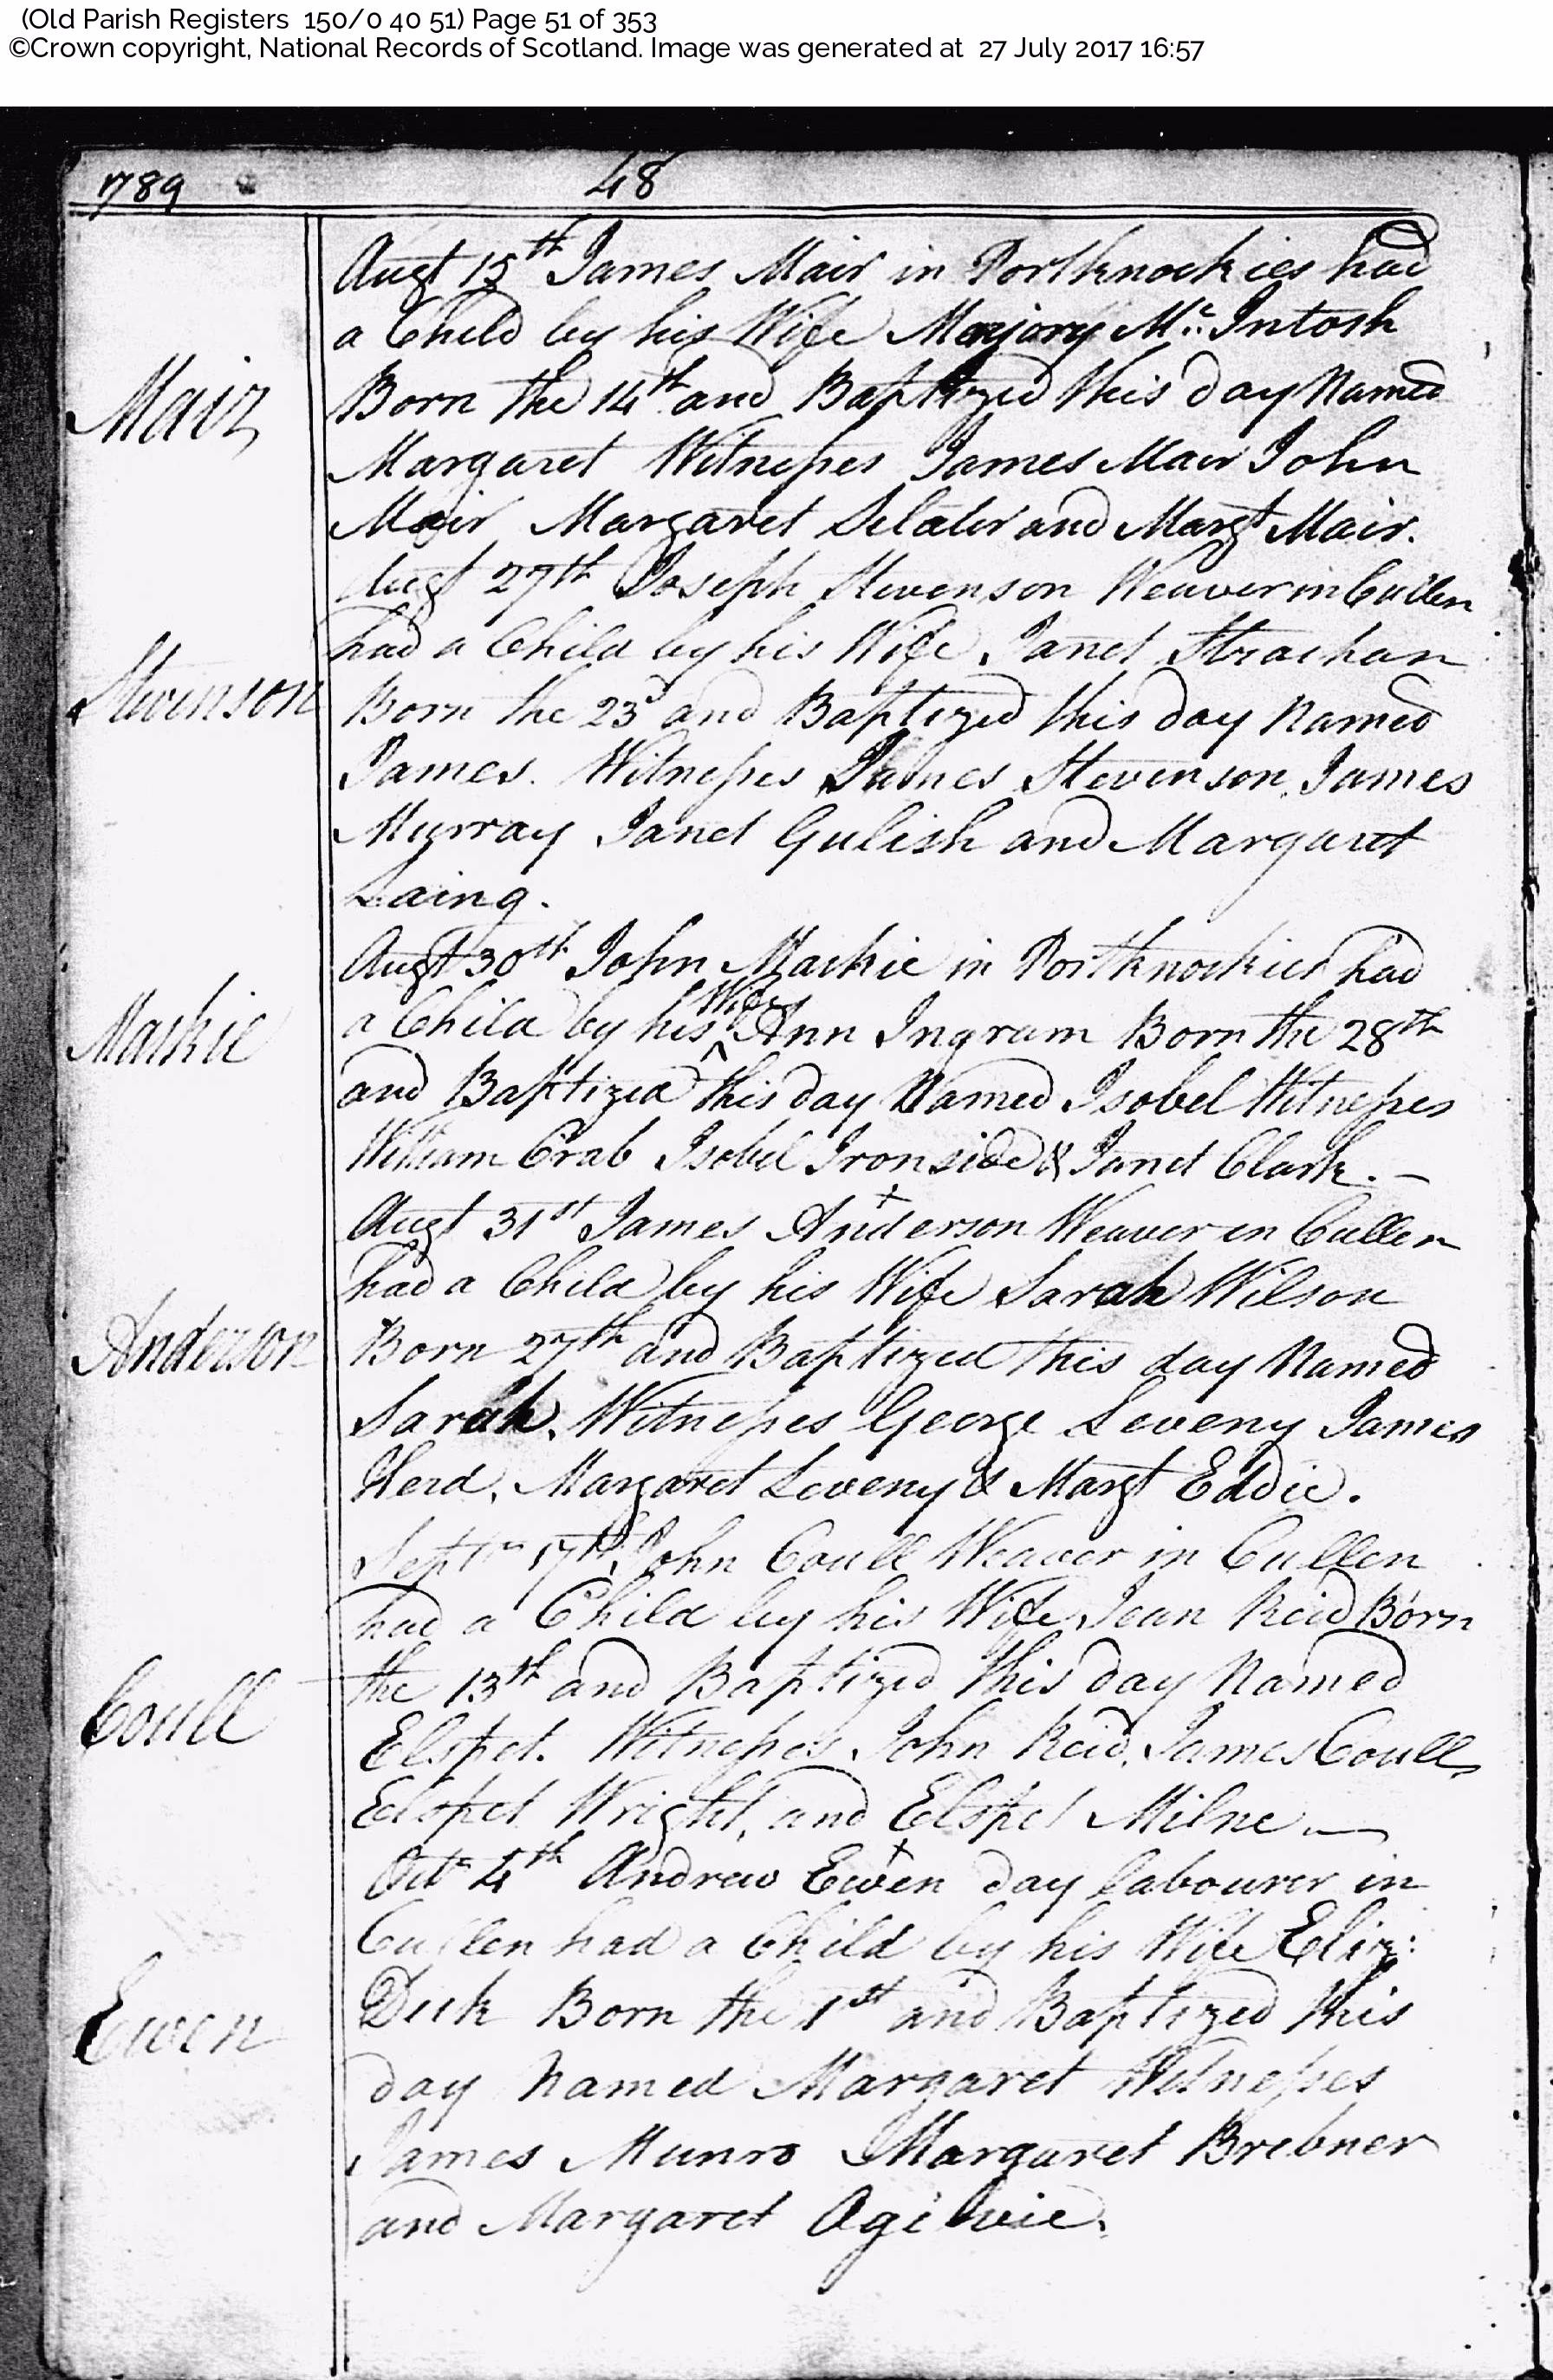 (Old Parish Registers 150/0 40 51) Page 51 of 353
©Crown copyright, National Records of Scotland. Image was generated at 27 July 2017 16:57
1789 48
Augt 15th James Mair in Portknockies had
a Child by his Wife Marjory Mc. Intosh
Mair
Born the 14th and Baptized this day Named
Margaret Witnesses James Mair John
Mair Margaret Sclater and Margt Mair.
Augt 27th Joseph Stevenson Weaver in Cullen
had a Child by his Wife Janet Strachan
Stevenson
Born the 23d and Baptized this day Named
James. Witnesses James Stevenson James
Murray Janet Gulish and Margaret
Laing.
Augt 30th John Mackie in Portknockies had
Mackie
a Child by his Wife Ann Ingram Born the 28th
and Baptized this day Named Isobel Witnesses
William Crab Isobel Ironside & Janet Clark. —
Augt 31st James Anderson Weaver in Cullen
had a Child by his Wife Sarah Wilson
Anderson
Born 27th and Baptized this day Named
Sarah. Witnesses George Leveny James
Herd, Margaret Leveny & Margt Eddie.
Septr 17th John Coull Weaver in Cullen
had a Child by his Wife Jean Reid Born
the 13th and Baptized this day Named
Coull
Elspet. Witnesses John Reid, James Coull,
Elspet Wright, and Elspet Milne —
Octr 4th Andrew Ewen day labourer in
Cullen had a Child by his Wife Eliz:
Ewen
Dick Born the 1st and Baptized this
day Named Margaret Witnesses
James Munro Margaret Brebner
and Margaret Ogilvie.